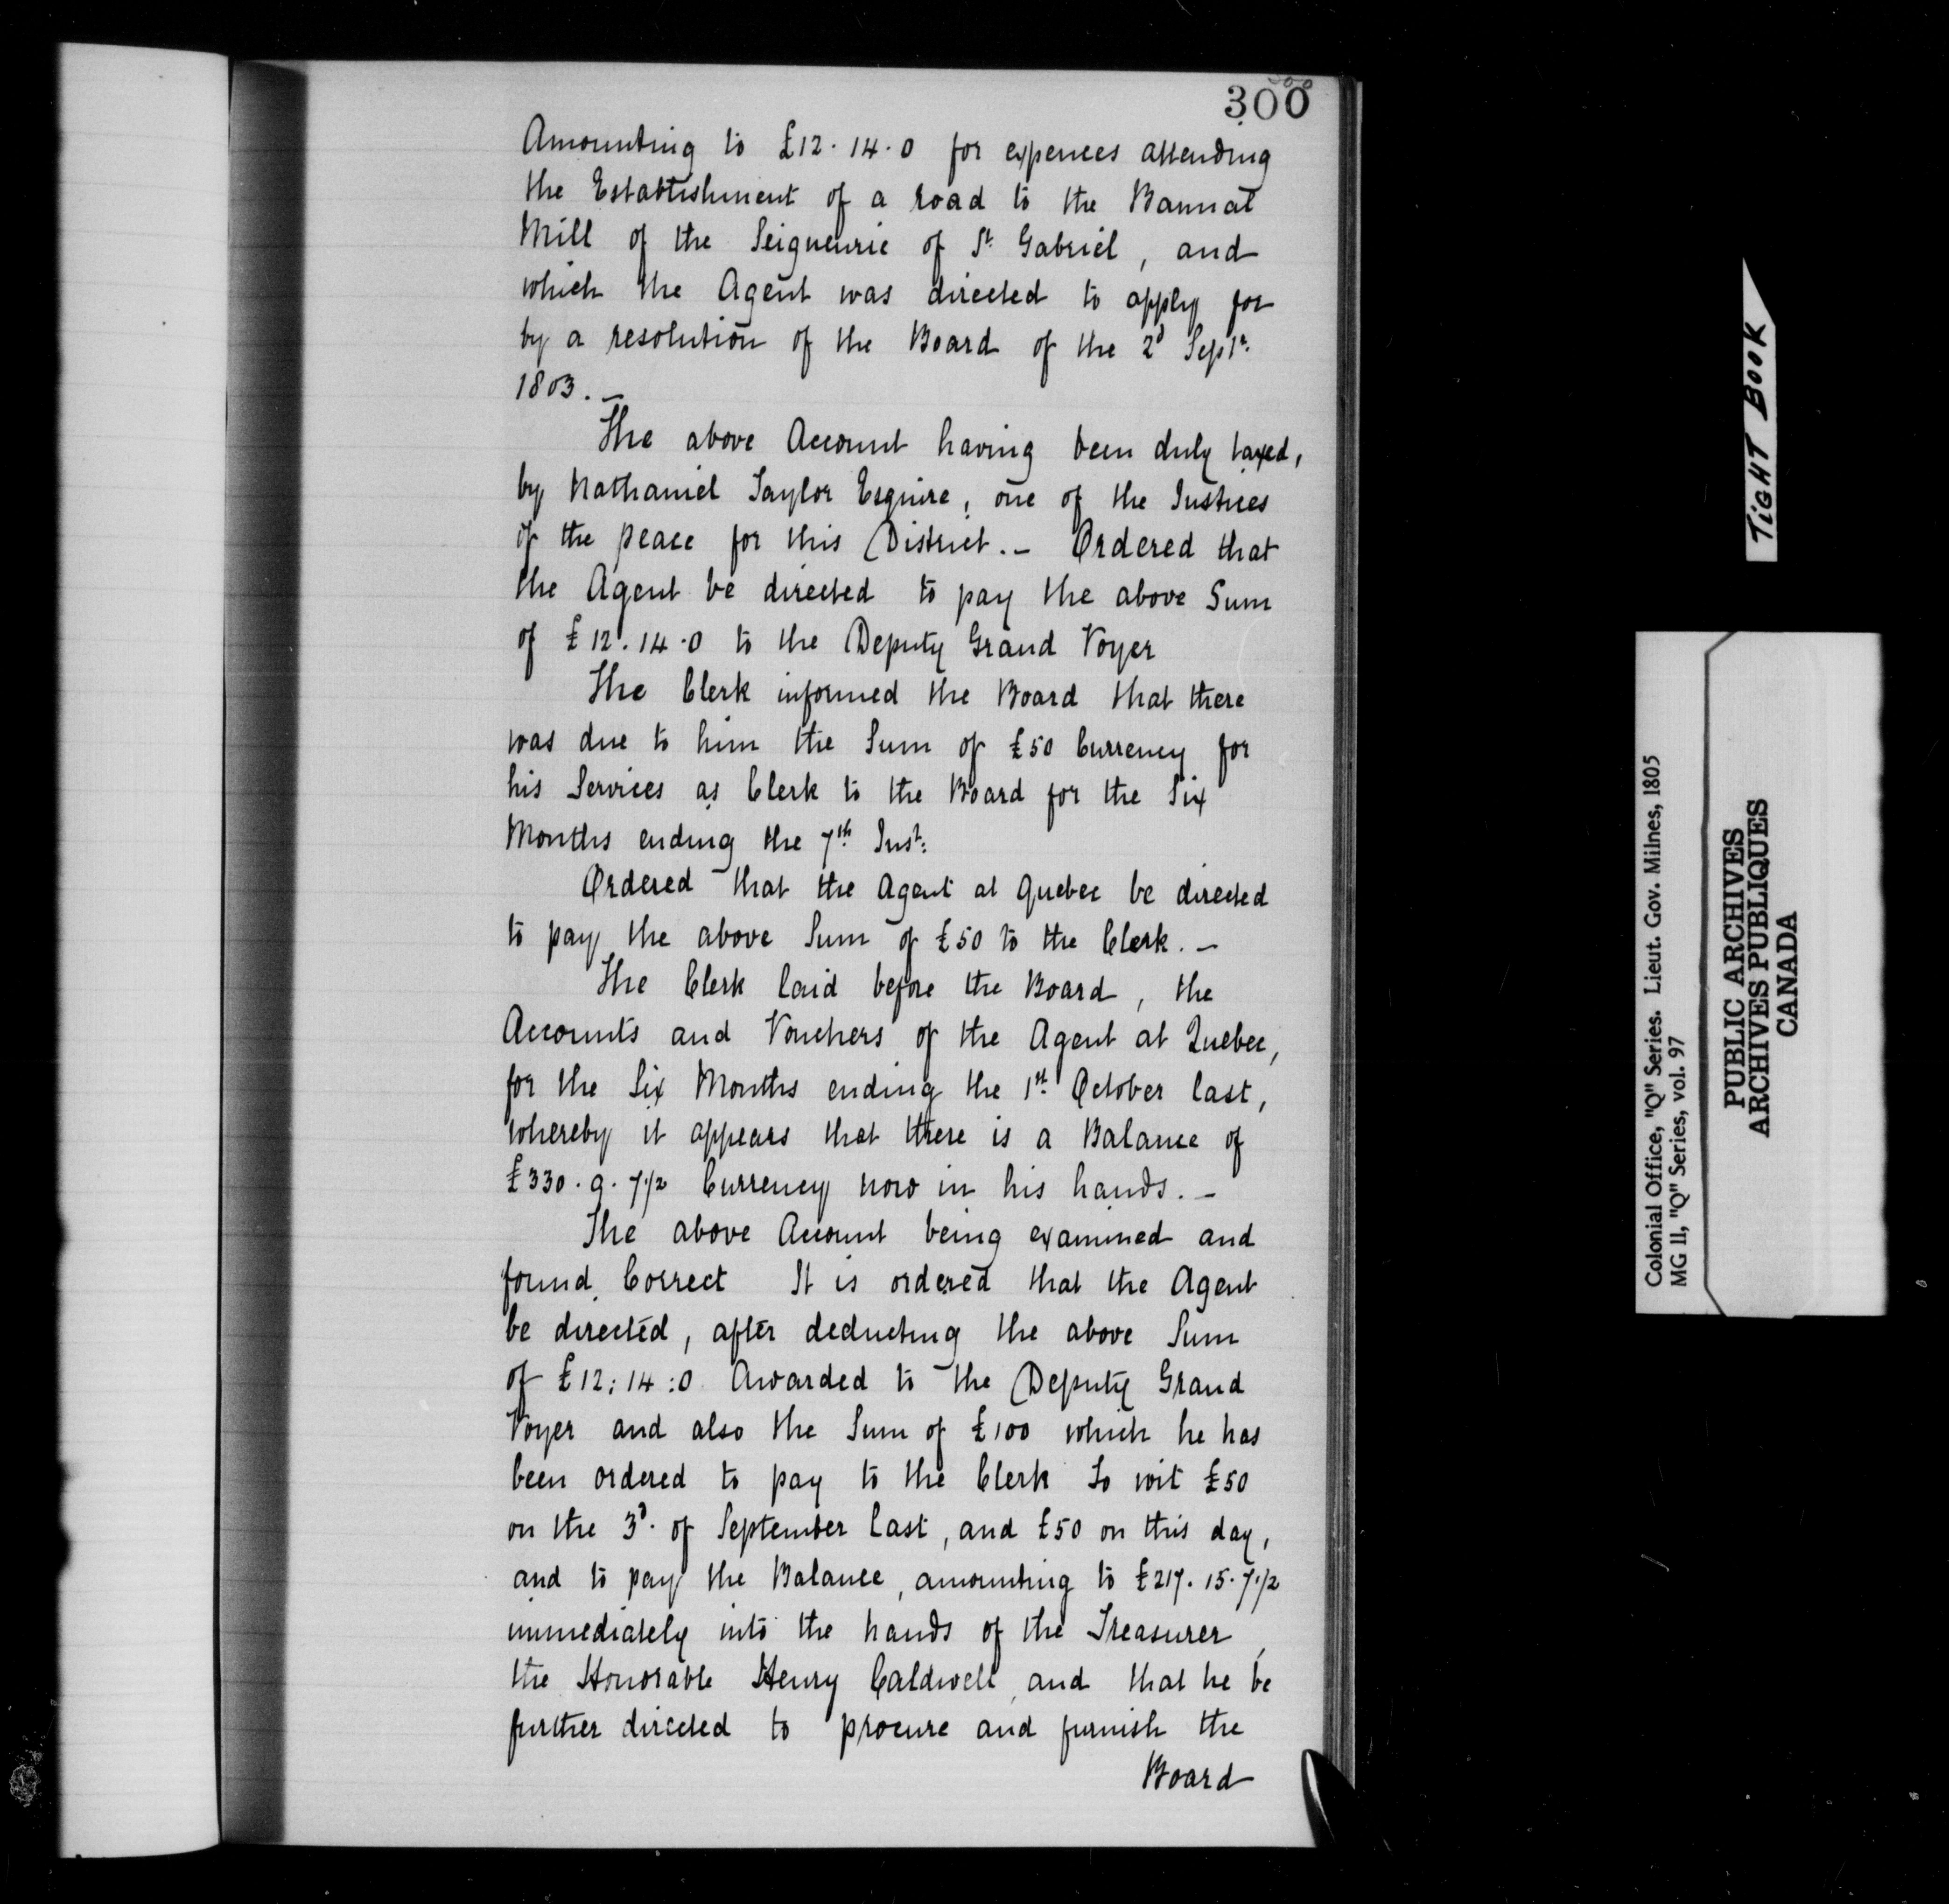 300
Amounting to £12.14.0 for expences attending
the Establishment of a road to the Bannal
Mill of the Seigneurie of St. Gabriel, and
which the Agent was directed to apply for
by a resolution of the Board of the 2d Septr.
1803.—
The above Account having been duly taxed,
by Nathaniel Taylor Esquire, one of the Justices
of the peace for this District.— Ordered that
the Agent be directed to pay the above Sum
of £12.14.0 to the Deputy Grand Voyer
The Clerk informed the Board that there
was due to him the Sum of £50 Currency for
his Services as Clerk to the Board for the Six
Months ending the 7th Inst:
Ordered that the Agent at Quebec be directed
to pay the above Sum of £50 to the Clerk.—
The Clerk laid before the Board, the
Accounts and Vouchers of the Agent at Quebec,
for the Six Months ending the 1st October last,
whereby it appears that there is a Balance of
£330.9.7½ Currency now in his hands.—
The above Account being examined and
found Correct It is ordered that the Agent
be directed, after deducting the above Sum
of £12:14:0 Awarded to the Deputy Grand
Voyer and also the Sum of £100 which he has
been ordered to pay to the Clerk To wit £50
on the 3d. of September last, and £50 on this day,
and to pay the Balance, amounting to £217.15.7½
immediately into the hands of the Treasurer,
the Honorable Henry Caldwell, and that he be
further directed to procure and furnish the
Board
TIGHT BOOK
Colonial Office, "Q" Series. Lieut. Gov. Milnes, 1805
MG 11, "Q" Series, vol. 97
PUBLIC ARCHIVES
ARCHIVES PUBLIQUES
CANADA